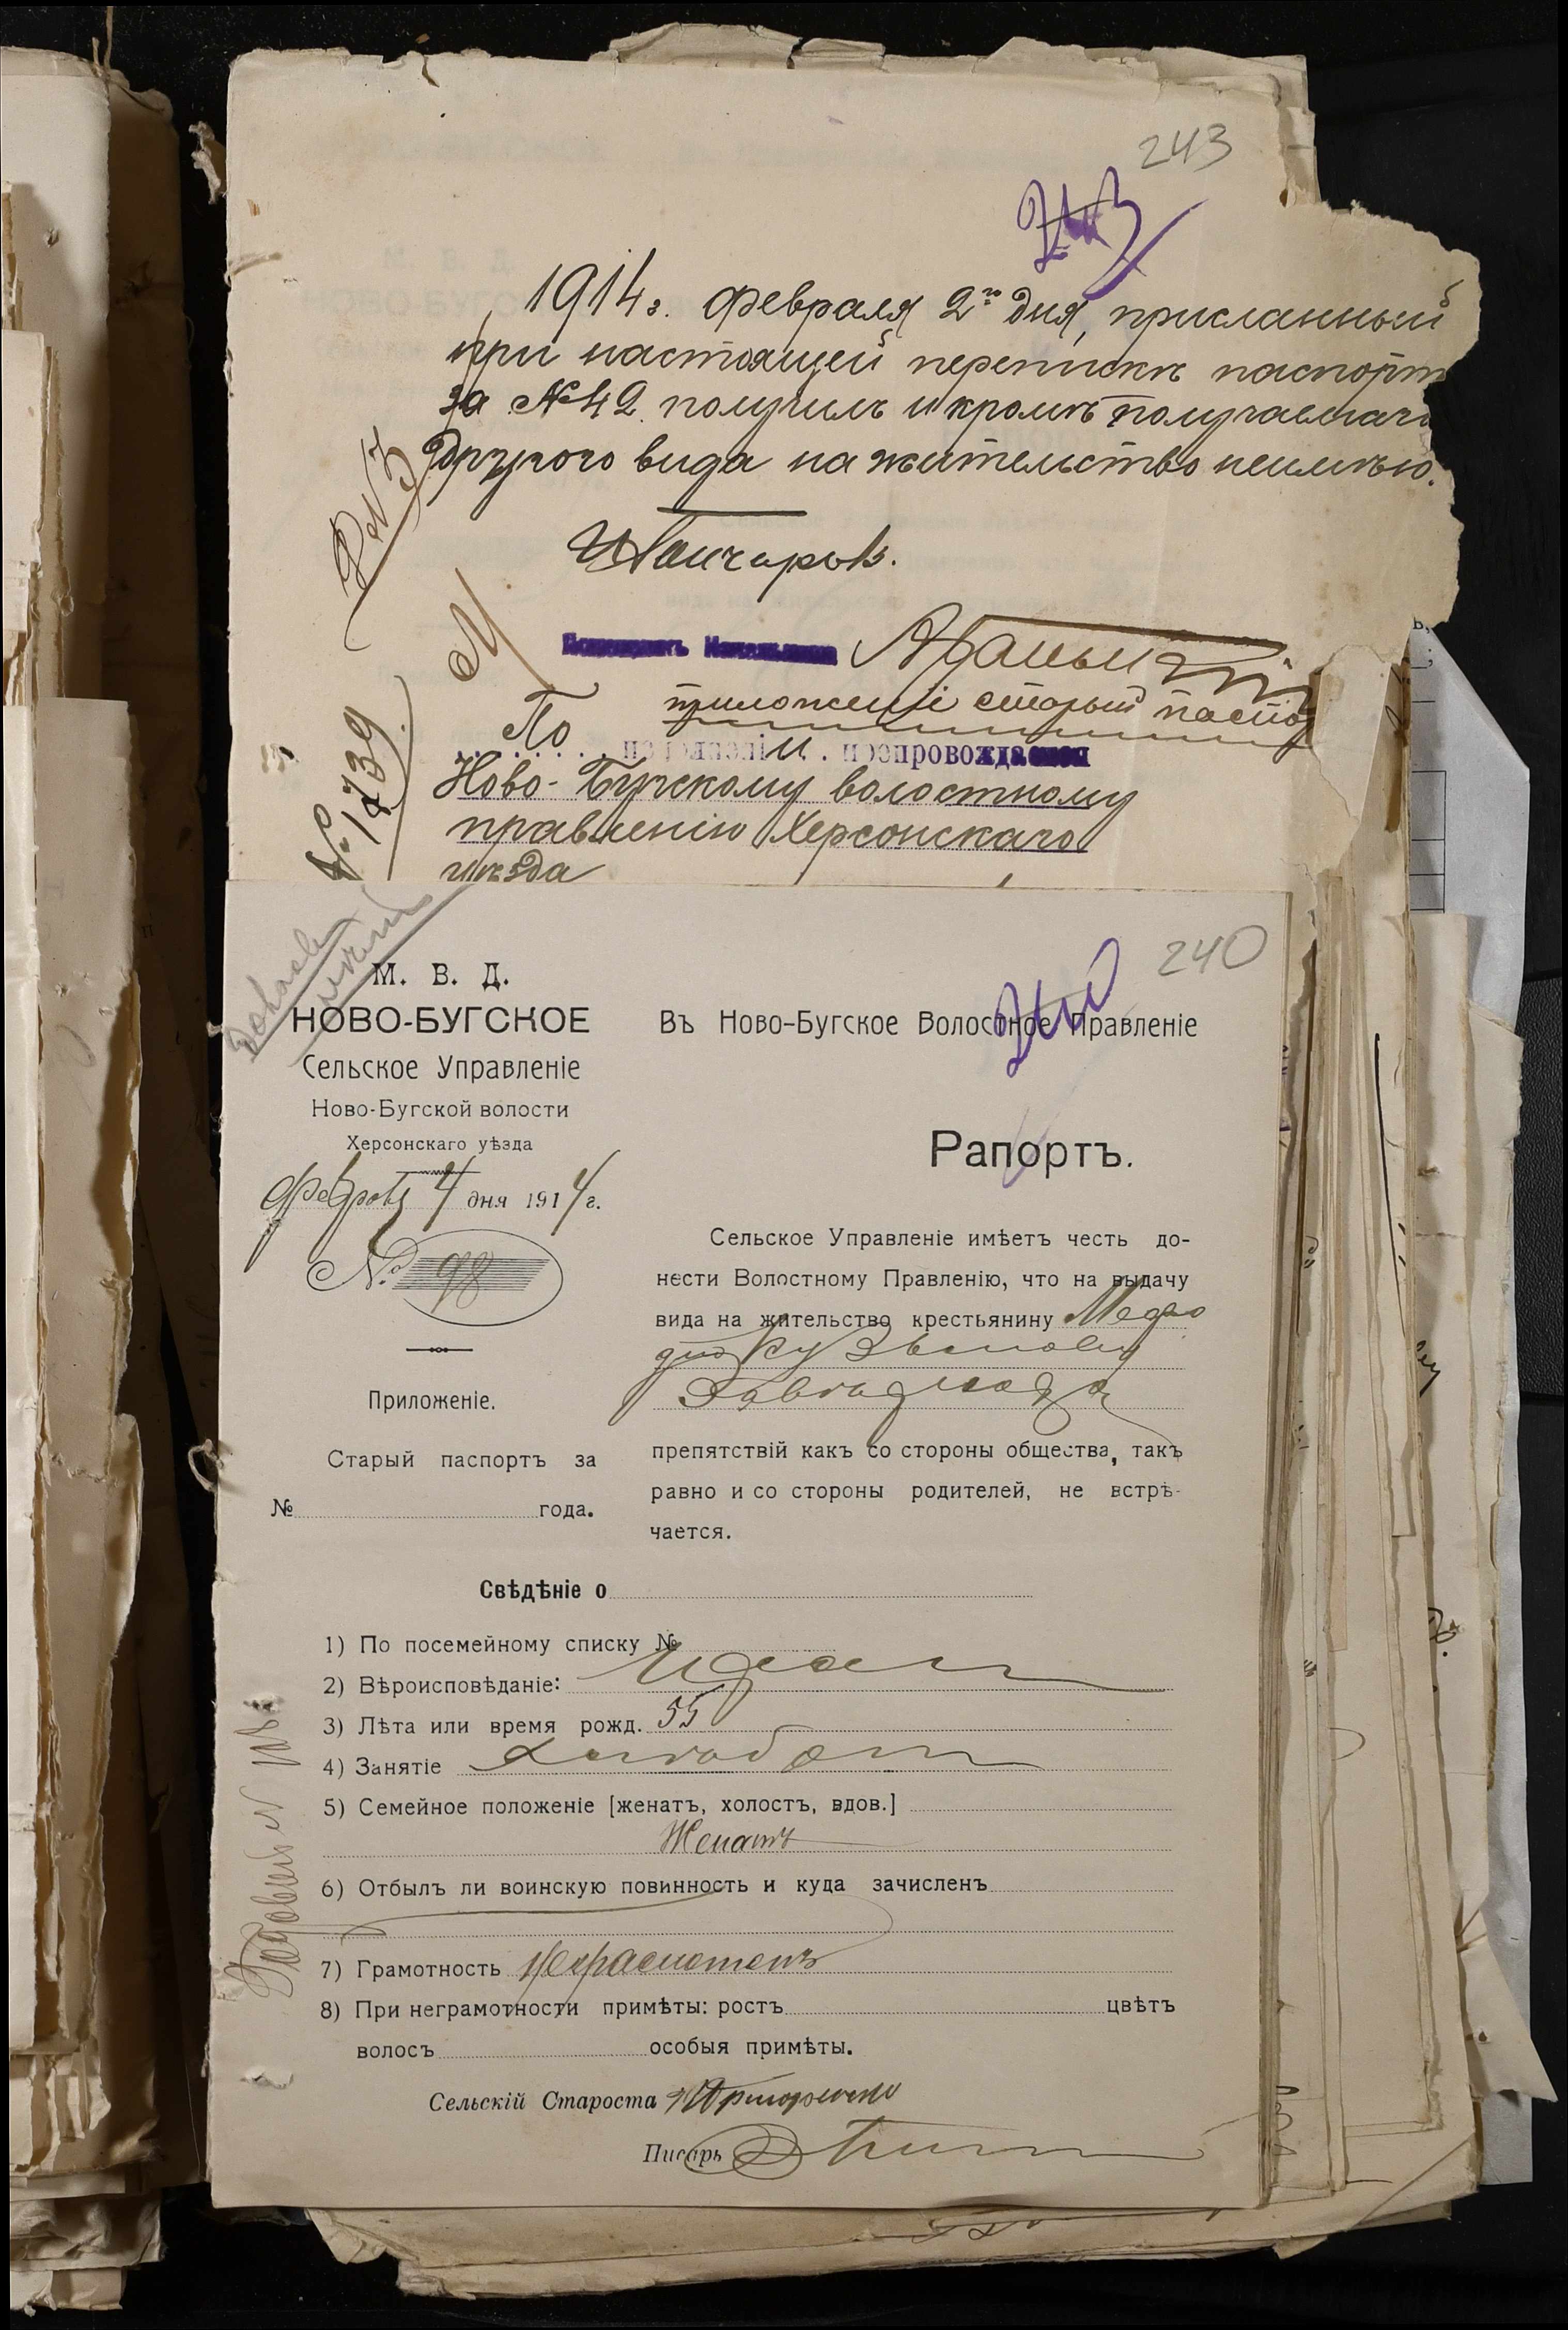 243
243
1914 г. февраля 2го дня, присланный
при настоящей перепискѣ паспортъ
за № 42 получилъ и кромѣ получаемаго
другого вида на жительство неимѣю.
Помощникъ Начальника
приложеніе старый паспор
По исполненіи препровождается
Ново-Бугскому волостному
правленію Херсонскаго
уѣзда
№ 1739
240
240
М. В. Д.
НОВО-БУГСКОЕ
Сельское Управленіе
Ново-Бугской волости
Херсонскаго уѣзда
4 дня 1914 г.
№ 98
Приложеніе.
Старый паспортъ за
№ года.
Въ Ново-Бугское Волостное Правленіе
Рапортъ.
Сельское Управленіе имѣетъ честь до-
нести Волостному Правленію, что на выдачу
вида на жительство крестьянину
Кузьмову
препятствій какъ со стороны общества, такъ
равно и со стороны родителей, не встрѣ-
чается.
Свѣдѣніе о
1) По посемейному списку №
2) Вѣроисповѣданіе:
3) Лѣта или время рожд. 55
4) Занятіе
5) Семейное положеніе [женатъ, холостъ, вдов.]
Женатъ
6) Отбылъ ли воинскую повинность и куда зачисленъ
7) Грамотность Неграмотенъ
8) При неграмотности примѣты: ростъ цвѣтъ
волосъ особыя примѣты.
Сельскій Староста
Писарь